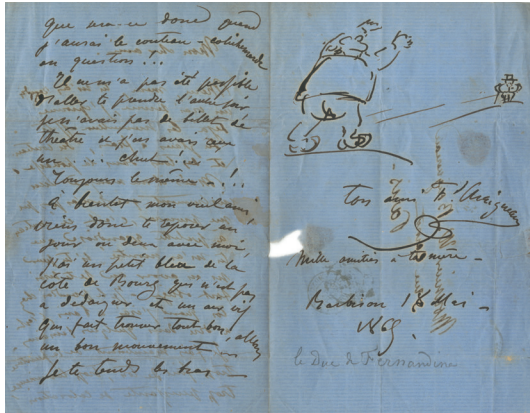 que sera-ce donc quand
j'aurai le couteau-
en question !!!
Il ne m'a pas été possible
d'aller te prendre l'autre jour
je n'avais pas de billet de
théâtre et j'
un.... chut !!!
Toujours le même !!..
A bientôt mon vieil ami,
viens donc te reposer un
jour ou deux avec moi,
j'ai un petit bleu de la
côte de Bourg qui n'est pas
à dédaigner et un air vif
qui fait trouver tout bon, allons
un bon mouvement
je te tends les bras -
ton ami
Mille amitiés à ta mère -
Barbison 18 Mai -
1869.
le Duc de Fernandina